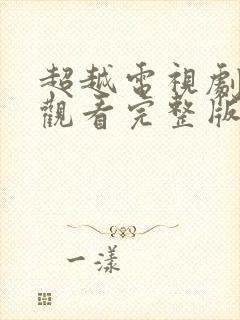 超越電視劇
觀看完整版
一漾